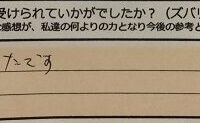 受けられていかがでしたか？（ズバリ
な感想が、私達の何よりの力となり今後の参考と
たです